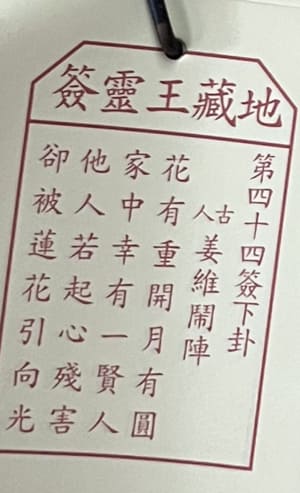 地藏王靈簽
第四十四簽下卦
古人 姜維鬧陣
花有重開月有圓
家中幸有一賢人
他人若起心殘害
卻被蓮花引向光